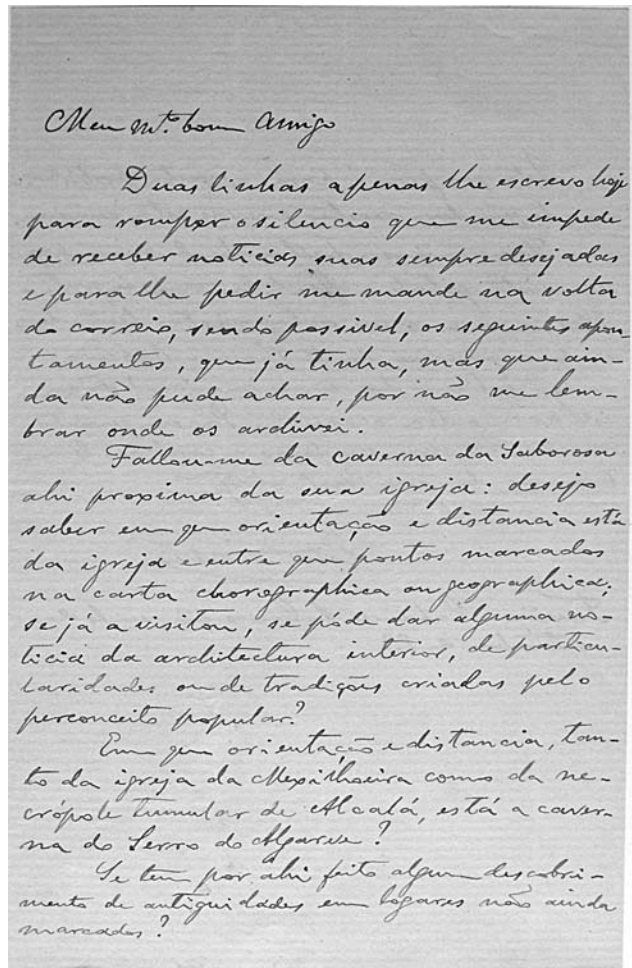 Meu m.to bom Amigo
Duas linhas apenas lhe escrevo hoje
para romper o silencio que me impede
de receber noticias suas sempre desejadas
e para lhe pedir me mande na volta
do correio, sendo possivel, os seguintes apon-
tamentos, que já tinha, mas que ain-
da não pude achar, por não me lem-
brar onde os archivei.
Fallou-me da caverna da Saborosa
ahi proxima da sua igreja: desejo
saber em que orientação e distancia está
da igreja e entre que pontos marcados
na carta chorographica ou geographica;
se já a visitou, se póde dar alguma no-
ticia da architectura interior, de particu-
laridades ou de tradições criadas pelo
perconceito popular?
Em que orientação e distancia, tan-
to da igreja da Mexilhoeira como da ne-
crópole tumular de Alcalá, está a caver-
na do Serro do Algarve?
Se tem por ahi feito algum descobri-
mento de antiguidades em logares não ainda
marcados?